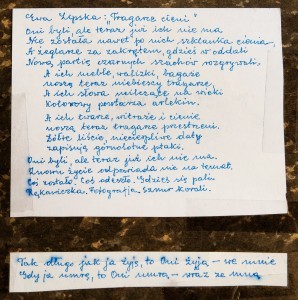 Ewa Lipska: "Tragarze cieni"
Oni byli, ale teraz już ich nie ma
Nie została nawet po nich szklanka cienia,
A żeglarze za zakrętem, gdzieś w oddali
Nową partię czarnych szachów rozgrywali,
A ich meble, walizki, bagaże
noszą teraz niebiescy tragarze,
A ich słowa milczące na wieki
Kolorowy powtarza arlekin.
A ich twarze, witraże i cienie
noszą teraz tragarze przestrzeni.
Żółte liście, niecierpliwe daty
zapisują górnolotne ptaki.
Oni byli, ale teraz już ich nie ma.
Znowu życie odpowiada nie na temat.
Coś zostało. Coś odeszło. Gdzieś się pali
Rękawiczka. Fotografia. Sznur korali.
Tak długo jak ja żyję, to Oni żyją - we mnie
Gdy ja umrę, to Oni umrą - wraz ze mną